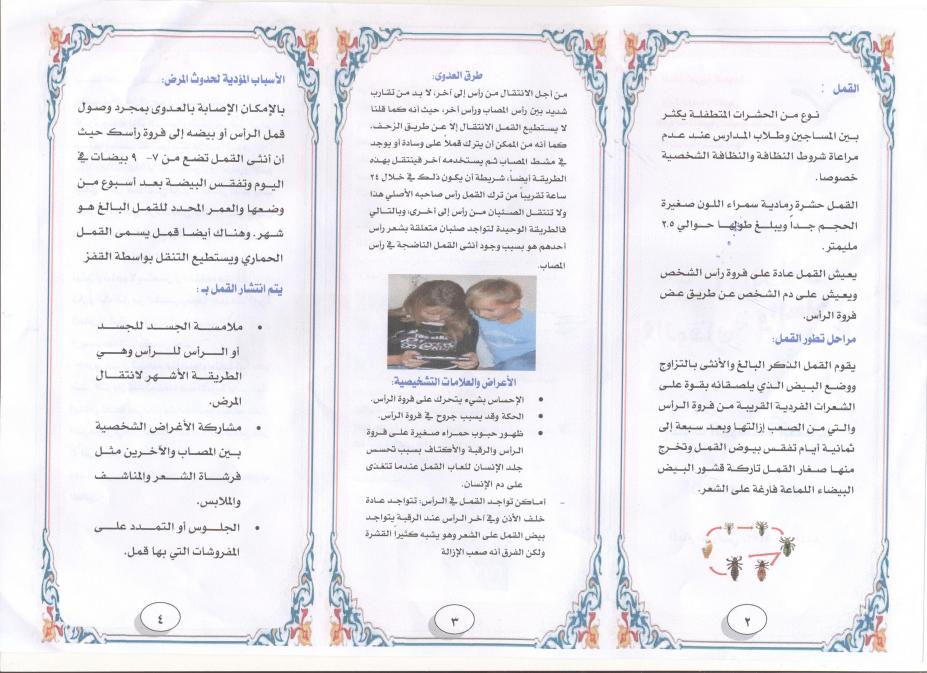 القمل :
نوع من الحشرات المتطفلة يكثر
بين المساجين وطلاب المدارس عند عدم
مراعاة شروط النظافة والنظافة الشخصية
خصوصا.
القمل حشرة رمادية سمراء اللون صغيرة
الحجم جداً ويبلغ طولها حوالي ٢.٥
مليمتر.
يعيش القمل عادة على فروة رأس الشخص
ويعيش على دم الشخص عن طريق عض
فروة الرأس.
مراحل تطور القمل:
يقوم القمل الذكر البالغ والأنثى بالتزاوج
ووضع البيض الذي يلصقانه بقوة على
الشعرات الفردية القريبة من فروة الرأس
والتي من الصعب إزالتها وبعد سبعة إلى
ثمانية أيام تفقس بيوض القمل وتخرج
منها صغار القمل تاركة قشور البيض
البيضاء اللماعة فارغة على الشعر.
٢
طرق العدوى:
من أجل الانتقال من رأس إلى آخر، لا بد من تقارب
شديد بين رأس المصاب ورأس آخر، حيث أنه كما قلنا
لا يستطيع القمل الانتقال إلا عن طريق الزحف.
كما أنه من الممكن أن يترك قملاً على وسادة أو يوجد
في مشط المصاب ثم يستخدمه آخر فينتقل بهذه
الطريقة أيضاً، شريطة أن يكون ذلك في خلال ٢٤
ساعة تقريباً من ترك القمل رأس صاحبه الأصلي هذا
ولا تنتقل الصئبان من رأس إلى أخرى، وبالتالي
فالطريقة الوحيدة لتواجد صئبان متعلقة بشعر رأس
أحدهم هو بسبب وجود أنثى القمل الناضجة في رأس
المصاب.
الأعراض والعلامات التشخيصية:
• الإحساس بشيء يتحرك على فروة الرأس.
• الحكة وقد يسبب جروح في فروة الرأس.
• ظهور حبوب حمراء صغيرة على فروة
الرأس والرقبة والأكتاف بسبب تحسس
جلد الإنسان للعاب القمل عندما تتغذى
على دم الإنسان.
- أماكن تواجد القمل في الرأس: تتواجد عادة
خلف الأذن وفي آخر الرأس عند الرقبة يتواجد
بيض القمل على الشعر وهو يشبه كثيراً القشرة
ولكن الفرق أنه صعب الإزالة
٣
الأسباب المؤدية لحدوث المرض:
بالإمكان الإصابة بالعدوى بمجرد وصول
قمل الرأس أو بيضه إلى فروة رأسك حيث
أن أنثى القمل تضع من ٧- ٩ بيضات في
اليوم وتفقس البيضة بعد أسبوع من
وضعها والعمر المحدد للقمل البالغ هو
شهر. وهناك أيضا قمل يسمى القمل
الحماري ويستطيع التنقل بواسطة القفز
يتم انتشار القمل بـ :
• ملامسة الجسد للجسد
أو الرأس للرأس وهي
الطريقة الأشهر لانتقال
المرض.
• مشاركة الأغراض الشخصية
بين المصاب والآخرين مثل
فرشاة الشعر والمناشف
والملابس.
• الجلوس أو التمدد على
المفروشات التي بها قمل.
٤